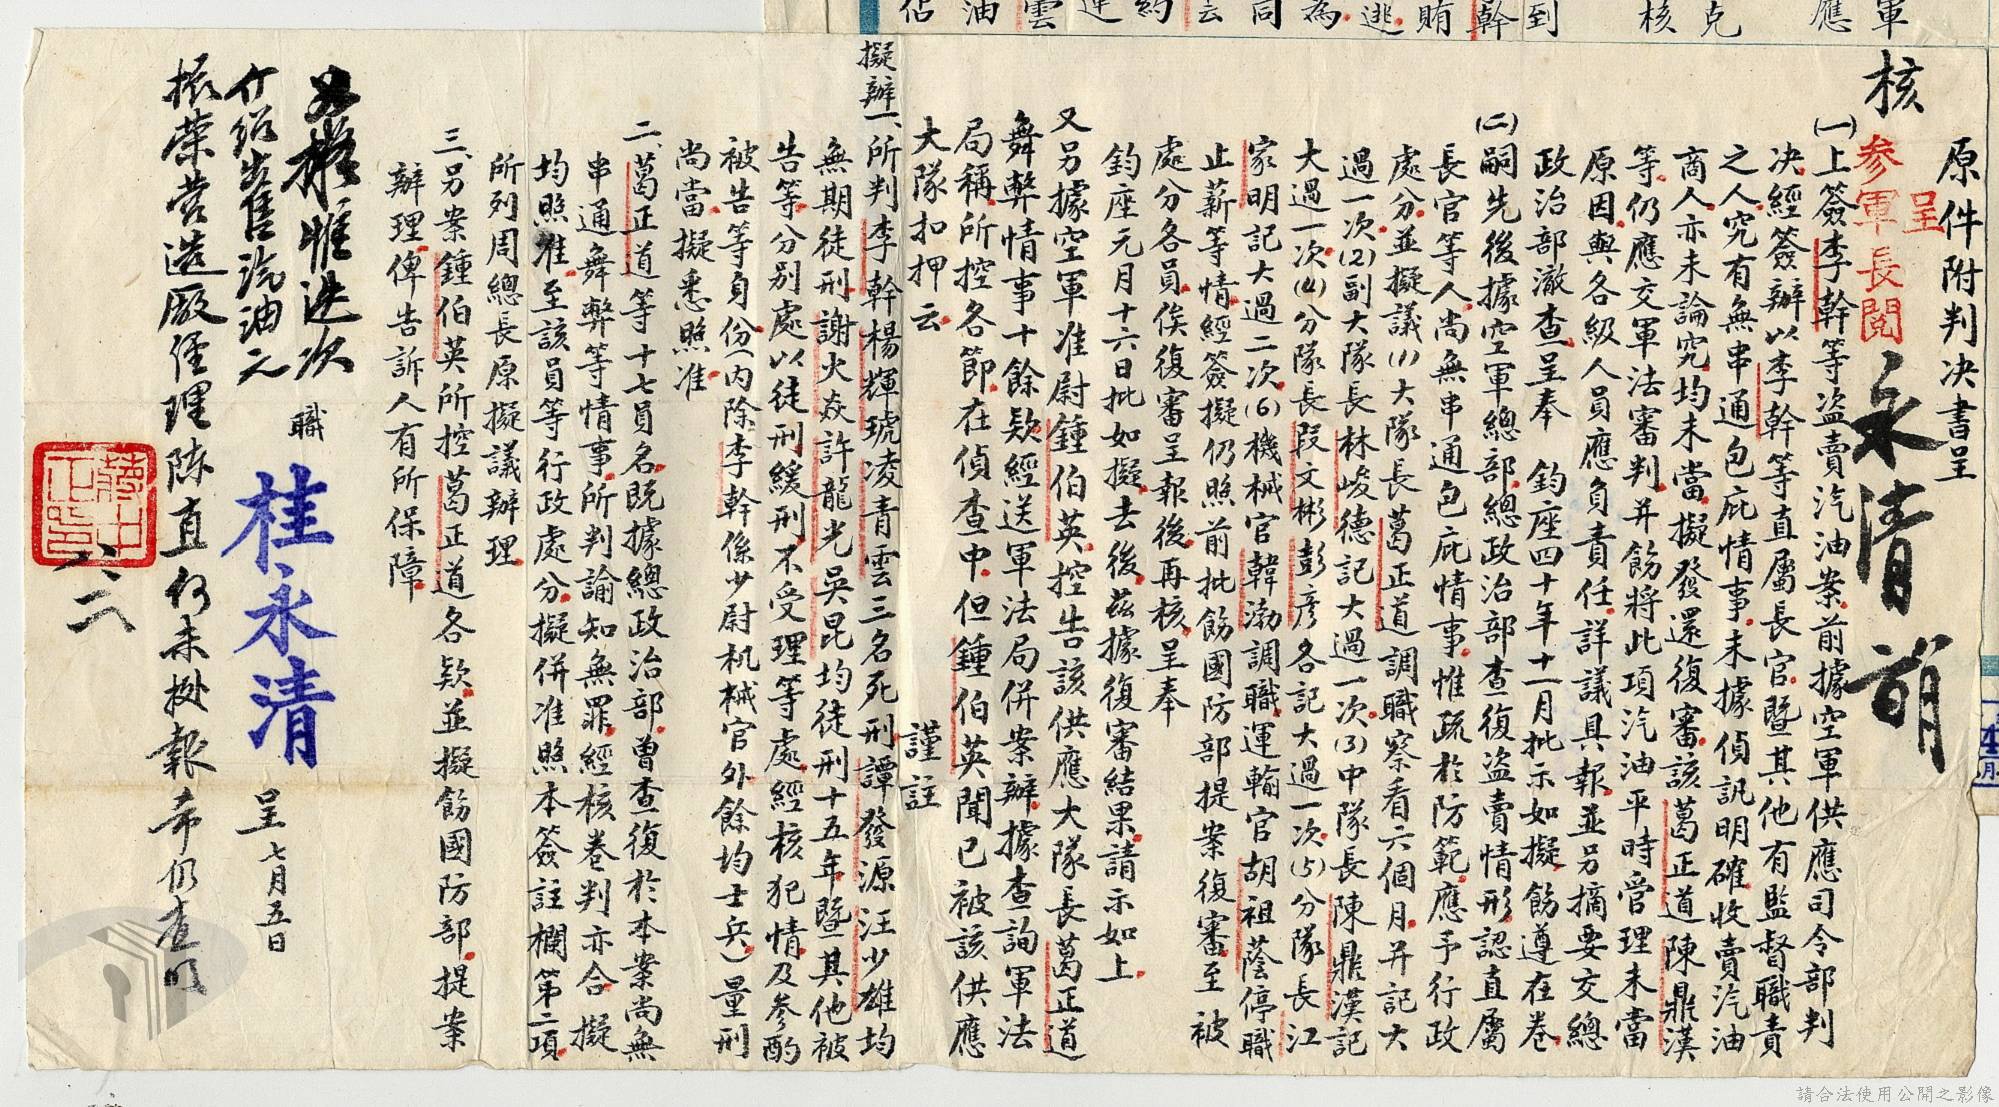 核
原件附判決書呈
呈
參軍長閱
永清
㈠上簽李幹等盜賣汽油案前據空軍供應司令部判
決經簽辦以李幹等直屬長官暨其他有監督職責
之人究有無串通包庇情事未據偵訊明確收賣汽油
商人亦未論究均未當擬發還復審該葛正道陳鼎漢
等仍應交軍法審判并飭將此項汽油平時管理未當
原因與各級人員應負責任詳議具報並另摘要交總
政治部澈查呈奉 鈞座四十年十一月批示如擬飭遵在卷
㈡嗣先後據空軍總部總政治部查復盜賣情形認直屬
長官等人尚無串通包庇情事惟疏於防範應予行政
處分並擬議⑴大隊長葛正道調職察看六個月并記大
過一次⑵副大隊長林峻德記大過一次⑶中隊長陳鼎漢記
大過一次⑷分隊長段文彬彭彥各記大過一次⑸分隊長江
家明記大過二次⑹機械官韓渤調職運輸官胡祖蔭停職
止薪等情經簽擬仍照前批飭國防部提案復審至被
處分各員俟復審呈報後再核呈奉
鈞座元月十六日批如擬去後茲據復審結果請示如上
又另據空軍准尉鍾伯英控告該供應大隊長葛正道
舞弊情事十餘款經送軍法局併案辦據查詢軍法
局稱所控各節在偵查中但鍾伯英聞已被該供應
大隊扣押云 謹註
擬辦一、所判李幹楊輝琥凌青雲三名死刑譚發源汪少雄均
無期徒刑謝火焱許龍光吳昆均徒刑十五年暨其他被
告等分別處以徒刑緩刑不受理等處經核犯情及參酌
被告等身份(內除李幹係少尉机械官外餘均士兵)量刑
尚當擬悉照准
二、葛正道等十七員名既據總政治部曾查復於本案尚無
串通舞弊等情事所判諭知無罪經核卷判亦合擬
均照准至該員等行政處分擬併准照本簽註欄第二項
所列周總長原擬議辦理
三、另案鍾伯英所控葛正道各款並擬飭國防部提案
辦理俾告訴人有所保障
職 桂永清 呈 七月五日
如擬惟此次
介紹出售汽油之
振榮營造廠經理陈直何未捉報希仍查明
蔣中正印
八